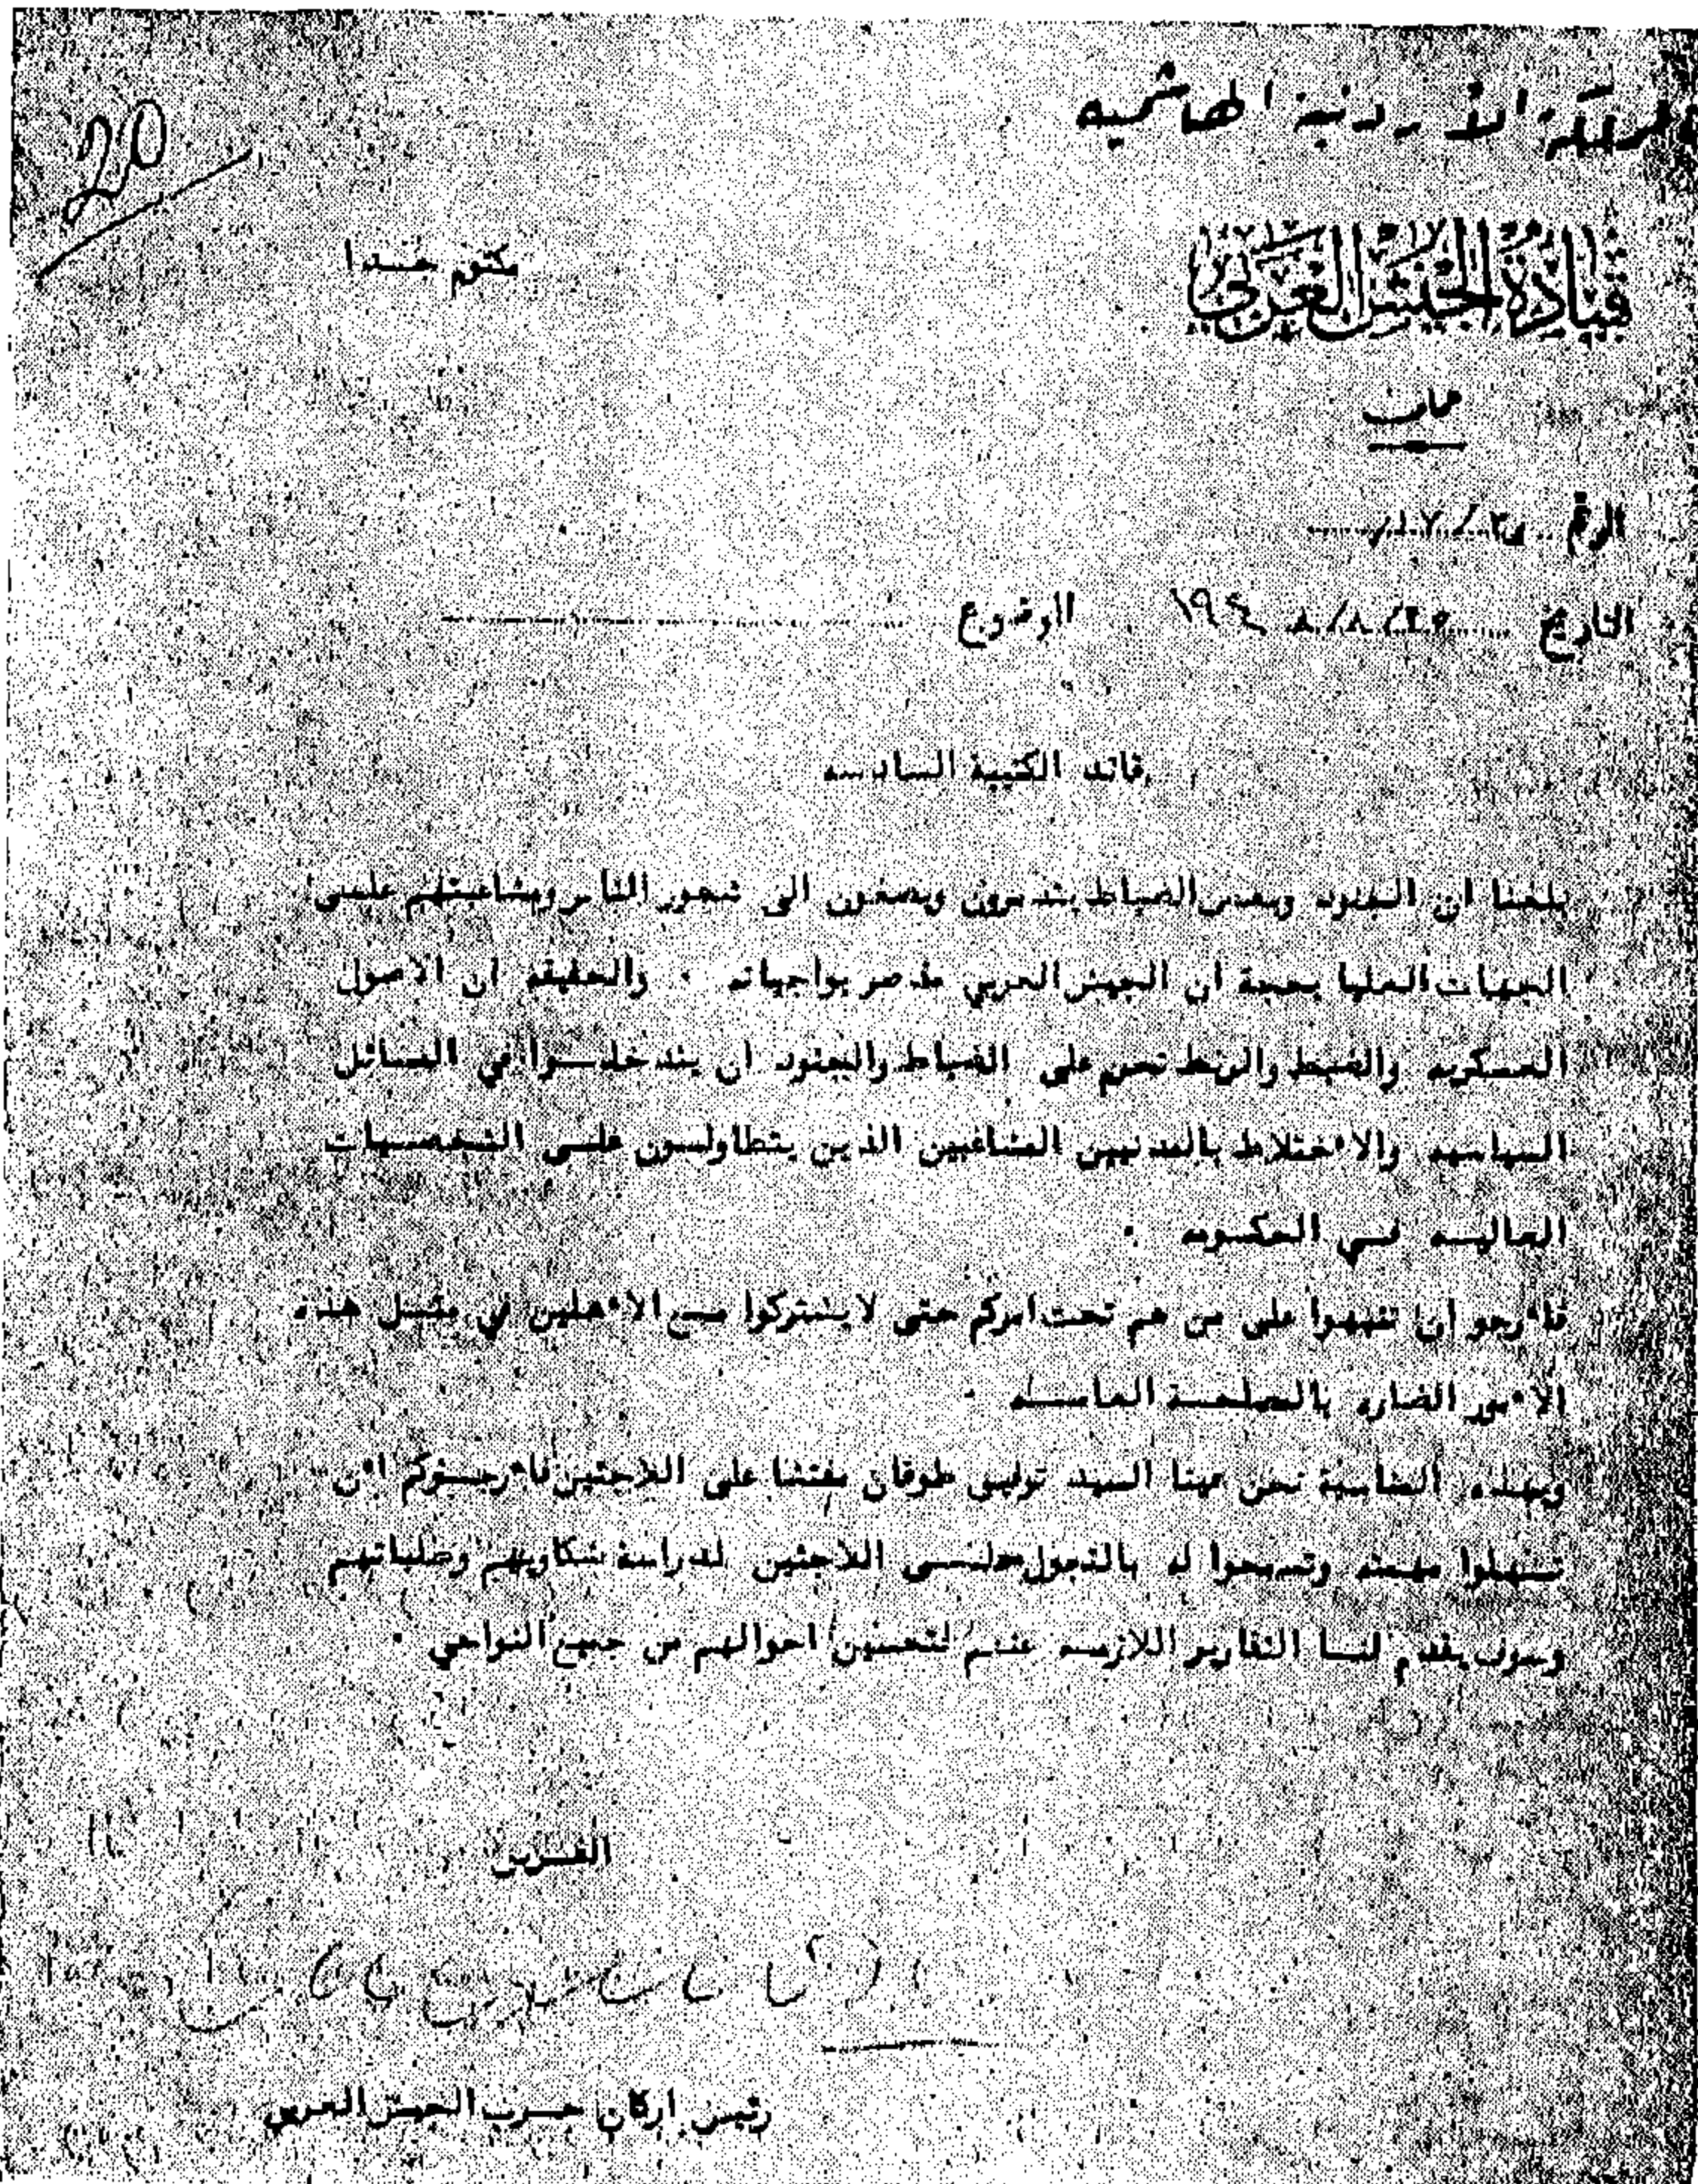 المملكة الأردنية الهاشميه
20
مكتوم جدا
قيادة الجيش العربي
عمان
الرقم
التاريخ ٢٥/٨/ ١٩٤٨ الموضوع
قائد الكتيبة السادسه
بلغنا ان الجنود وبعض الضباط يتذمرون ويصغون الى شعور الناس ومشاغبتهم على
الجهات العليا بحجة ان الجيش العربي مقصر بواجباته ٠ والحقيقه ان الاصول
العسكريه والضبط والربط تحرم على الضباط والجنود ان يتدخلوا في المسائل
السياسيه والاختلاط بالمدنيين المشاغبين الذين يتطاولون على الشخصيات
العاليه في الحكومه ٠
فأرجو ان تنبهوا على من هم تحت امركم حتى لا يشتركوا مع الأهلين في مثل هذه
الأمور الضاره بالمصلحة العامه ٠
وبهذه المناسبة نحن عينا السيد توفيق طوقان مفتشا على اللاجئين فأرجوكم أن
تسهلوا مهمته وتسمحوا له بالتجول على اللاجئين لدراسة شكاويهم وطلباتهم
وسوف يقدم لنا التقارير اللازمه عنهم لتحسين احوالهم من جميع النواحي ٠
الفريق
رئيس اركان حرب الجيش العربي